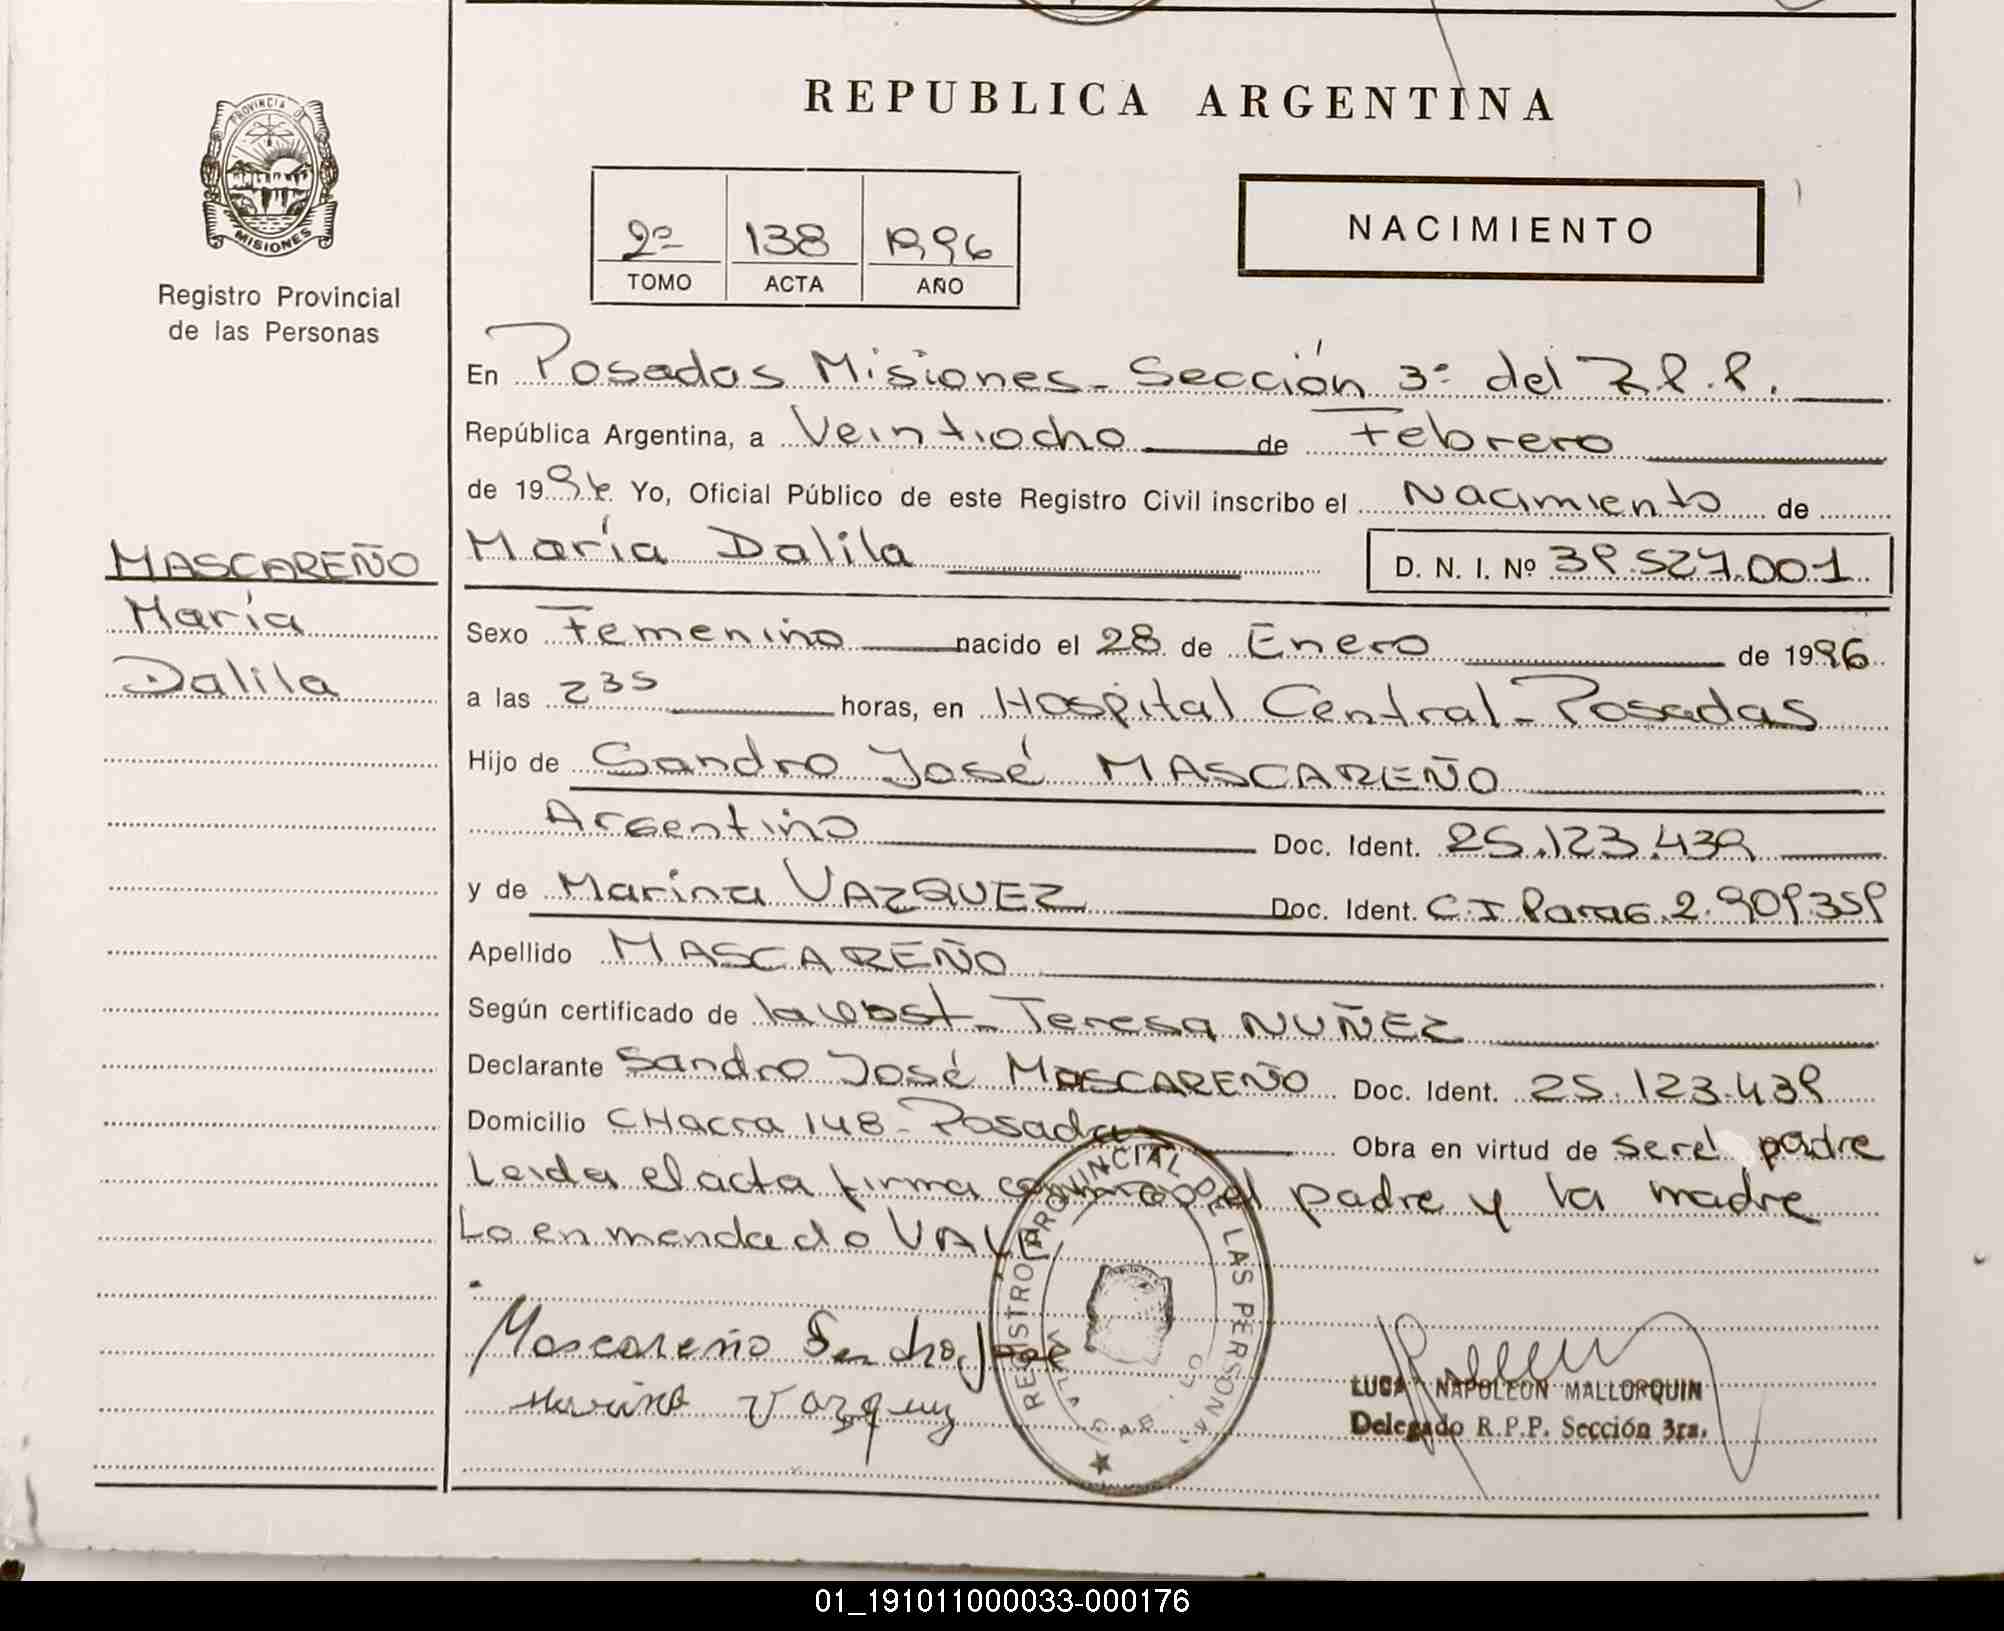 REPUBLICA ARGENTINA
PROVINCIA DE
MISIONES
Registro Provincial
de las Personas
2º 138 1996
TOMO ACTA AÑO
NACIMIENTO
En Posadas Misiones - Sección 3ª del R.P.P.
República Argentina, a Veintiocho de Febrero
de 1996 Yo, Oficial Público de este Registro Civil inscribo el Nacimiento de
María Dalila D. N. I. Nº 39.527.001
MASCAREÑO
María
Dalila
Sexo Femenino nacido el 28 de Enero de 1996
a las 2 35 horas, en Hospital Central - Posadas
Hijo de Sandro José MASCAREÑO
Argentino Doc. Ident. 25.123.439
y de Marina VAZQUEZ Doc. Ident. C.I Parag. 2.909.359
Apellido MASCAREÑO
Según certificado de la obst - Teresa NUÑEZ
Declarante Sandro José MASCAREÑO Doc. Ident. 25.123.439
Domicilio CHacra 148 - Posadas Obra en virtud de ser el padre
Leida el acta firma conmigo el padre y la madre
Lo enmendado VALE
Mascareño Sandro José
Marina Vazquez
REGISTRO PROVINCIAL DE LAS PERSONAS
LUCA NAPOLEON MALLORQUIN
Delegado R.P.P. Sección 3ra.
01_191011000033-000176